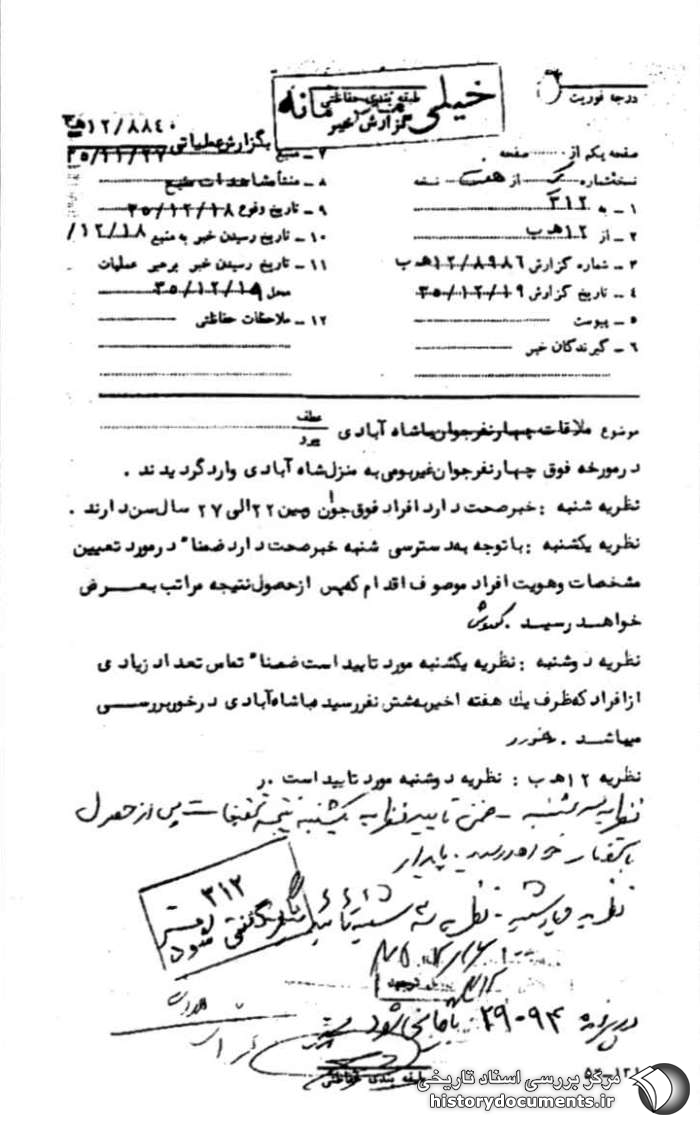 درجه فوریت
خیلی محرمانه
طبقه بندی حفاظتی
گزارش خبر
صفحه یکم از ........ صفحه
نسخه شماره یک از هفت نسخه
۱ ـ به ۳۱۲
۲ ـ از ۱۲ هـ ب
۳ ـ شماره گزارش ۱۲/۸۹۸۶ هـ ب
۴ ـ تاریخ گزارش ۳۵/۱۲/۱۹
۵ ـ پیوست
۶ ـ گیرندگان خبر
۱۲/۸۸۴۰ هـ
۷ ـ منبع بگزارش عملیاتی ۳۵/۱۱/۲۷
۸ ـ منشأ مشاهدات منبع
۹ ـ تاریخ وقوع ۳۵/۱۲/۱۸
۱۰ ـ تاریخ رسیدن خبر به منبع ۱۲/۱۸/
۱۱ ـ تاریخ رسیدن خبر برهبر عملیات
محل ۳۵/۱۲/۱۹
۱۲ ـ ملاحظات حفاظتی
موضوع ملاقات چهار نفر جوان با شاه آبادی
عطف
پیرو
در مورخه فوق چهار نفر جوان غیر بومی به منزل شاه آبادی وارد گردیدند .
نظریه شنبه : خبر صحت دارد افراد فوق جوان و بین ۲۲ الی ۲۷ سال سن دارند .
نظریه یکشنبه : با توجه به دسترسی شنبه خبر صحت دارد ضمناً در مورد تعیین
مشخصات و هویت افراد موصوف اقدام که پس از حصول نتیجه مراتب بعرض
خواهد رسید .
نظریه دوشنبه : نظریه یکشنبه مورد تایید است ضمناً تماس تعداد زیادی
از افراد که ظرف یک هفته اخیر به شش نفر رسیده با شاه آبادی در خور بررسی
میباشد .
نظریه ۱۲ هـ ب : نظریه دوشنبه مورد تایید است .
نظریه سه شنبه ـ ضمن تایید نظریه یکشنبه نتیجه تحقیقات پس از حصول
باستحضار خواهد رسید . پایدار
نظریه چهارشنبه ـ نظریه سه شنبه تأیید
۳۱۲
در پرونده ۲۹۰۹۴ بایگانی شود
طبقه بندی حفاظتی
مرکز بررسی اسناد تاریخی
historydocuments.ir